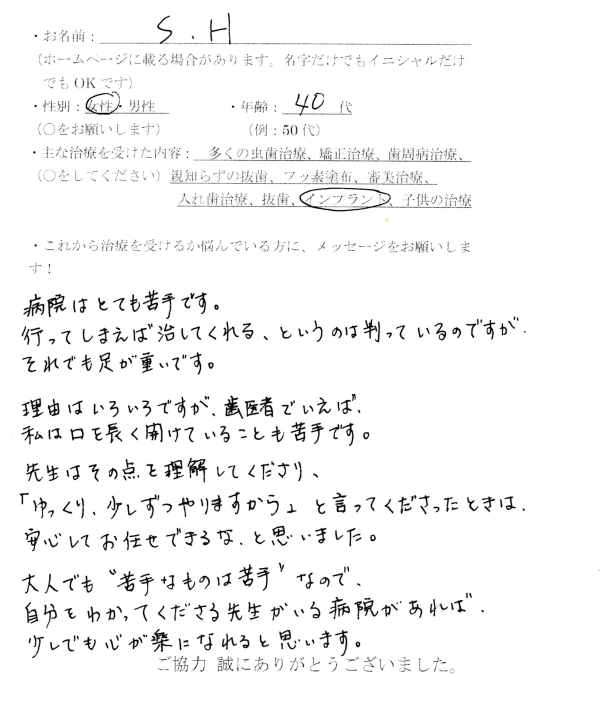 ・お名前： S.H
（ホームページに載る場合があります。名字だけでもイニシャルだけ
でもOKです）
・性別：女性・男性 ・年齢： 40 代
（○をお願いします） （例：50代）
・主な治療を受けた内容： 多くの虫歯治療、矯正治療、歯周病治療、
（○をしてください）親知らずの抜歯、フッ素塗布、審美治療、
入れ歯治療、抜歯、インプラント、子供の治療
・これから治療を受けるか悩んでいる方に、メッセージをお願いしま
す！
病院はとても苦手です。
行ってしまえば治してくれる、というのは判っているのですが、
それでも足が重いです。
理由はいろいろですが、歯医者でいえば、
私は口を長く開けていることも苦手です。
先生はその点を理解してくださり、
「ゆっくり、少しずつやりますから」と言ってくださったときは、
安心してお任せできるな、と思いました。
大人でも〝苦手なものは苦手〞なので、
自分をわかってくださる先生がいる病院があれば、
少しでも心が楽になれると思います。
ご協力 誠にありがとうございました。